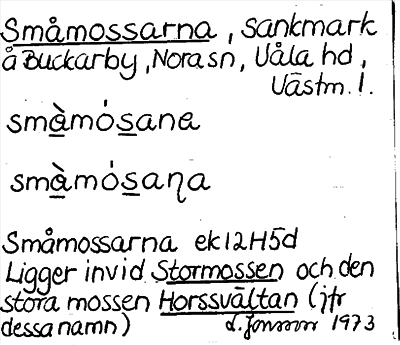 Småmossarna, sankmark
å Buckarby, Nora sn, Våla hd,
Västm. l.
smà̱mós̱ana
smà̱mós̱aɳa
Småmossarna ek 12H5d
Ligger invid Stormossen och den
stora mossen Horssvältan (jfr
dessa namn) 1973